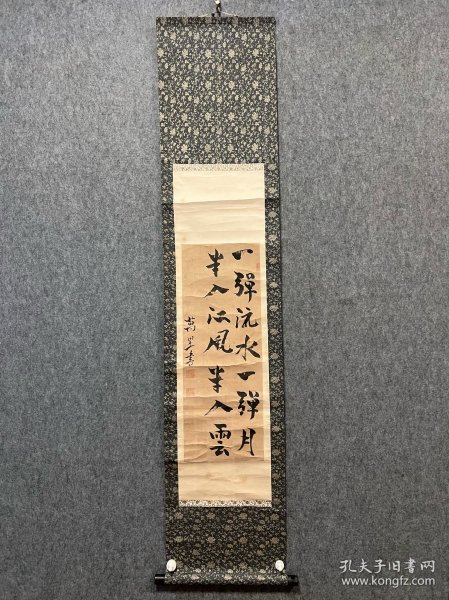 一弾流水一弾月
半入江風半入雲
孔夫子旧书网
www.kongfz.com